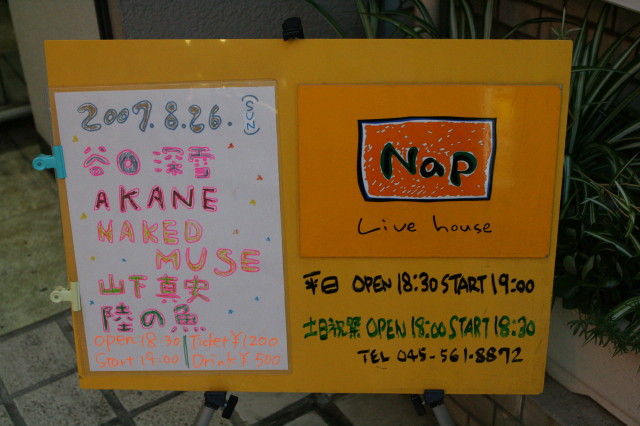 2007.8.26.(SUN)
谷口深雪
AKANE
NAKED
MUSE
山下真史
陸の魚
Open 18:30 Ticket ¥1200
Start 19:00 Drink ¥500
Nap
Live house
平日 OPEN 18:30 START 19:00
土日祝祭 OPEN 18:00 START 18:30
TEL 045-561-8872